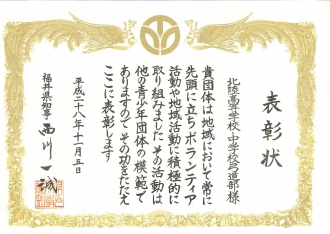 表彰状
北陸高等学校・中学校弓道部様
貴団体は地域において常に
先頭に立ちボランティア
活動や地域活動に積極的に
取り組みました その活動は
他の青少年団体の模範で
ありますので その功をたたえ
ここに表彰します
平成二十八年十一月五日
福井県知事 西川一誠